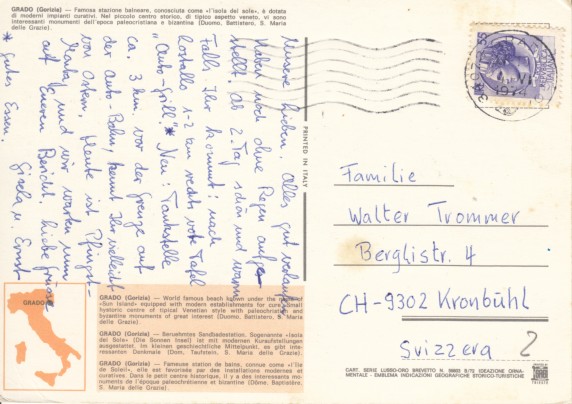 GRADO (Gorizia) — Famosa stazione balneare, conosciuta come «l'isola del sole», è dotata
di moderni impianti curativi. Nel piccolo centro storico, di tipico aspetto veneto, vi sono
interessanti monumenti dell'epoca paleocristiana e bizantina (Duomo, Battistero, S. Maria
delle Grazie).
Unsere Lieben. Alles gut verlaufen
Haben noch ohne Regen aufge-
stellt. Ab 2. Tag schön und warm
Falls Ihr kommt: nach
Costallo 1-2 km rechts rote Tafel
"Auto-Grill" * Neu: Tankstelle
ca. 3 km vor der Grenze auf
der Auto-Bahn, kennt Ihr vielleicht
von Ostern. Heute ist Pfingst-
und wir warten nun
auf Euren Bericht. Liebe Grüsse
Gisela u. Ernst
* gutes Essen.
PRINTED IN ITALY
Familie
Walter Trommer
Berglistr. 4
CH-9302 Kronbühl
Svizzera
2
GRADO
GRADO (Gorizia) — World famous beach known under the name of
«Sun Island» equipped with modern establishments for cures. Small
hystoric centre of tipical Venetian style with paleochristian and
byzantine monuments of great interest (Duomo, Battistero, S. Maria
delle Grazie).
GRADO (Gorizia) — Beruehmtes Sandbadestation. Sogenannte «Isola
del Sole» (Die Sonnen Insel) ist mit modernen Kuraushaltungen
ausgestattet. Im kleinen geschichtliche Mittelpunkt, es gibt inte-
ressanten Denkmale (Dom, Taufstein, S. Maria delle Grazie).
GRADO (Gorizia) — Fameuse station de bains, connue comme «l'Ile
de Soleil», elle est favorisée par des installations modernes et
curatives. Dans le petit centre historique, il y a des interessants monu-
ments de l'époque paleochrétienne et bizantine (Dôme, Baptistère,
S. Maria delle Grazie).
CART. SERIE LUSSO-ORO BREVETTO N. 59601 B/72 IDEAZIONE ORNA-
MENTALE - EMBLEMA INDICAZIONI GEOGRAFICHE STORICO-TURISTICHE